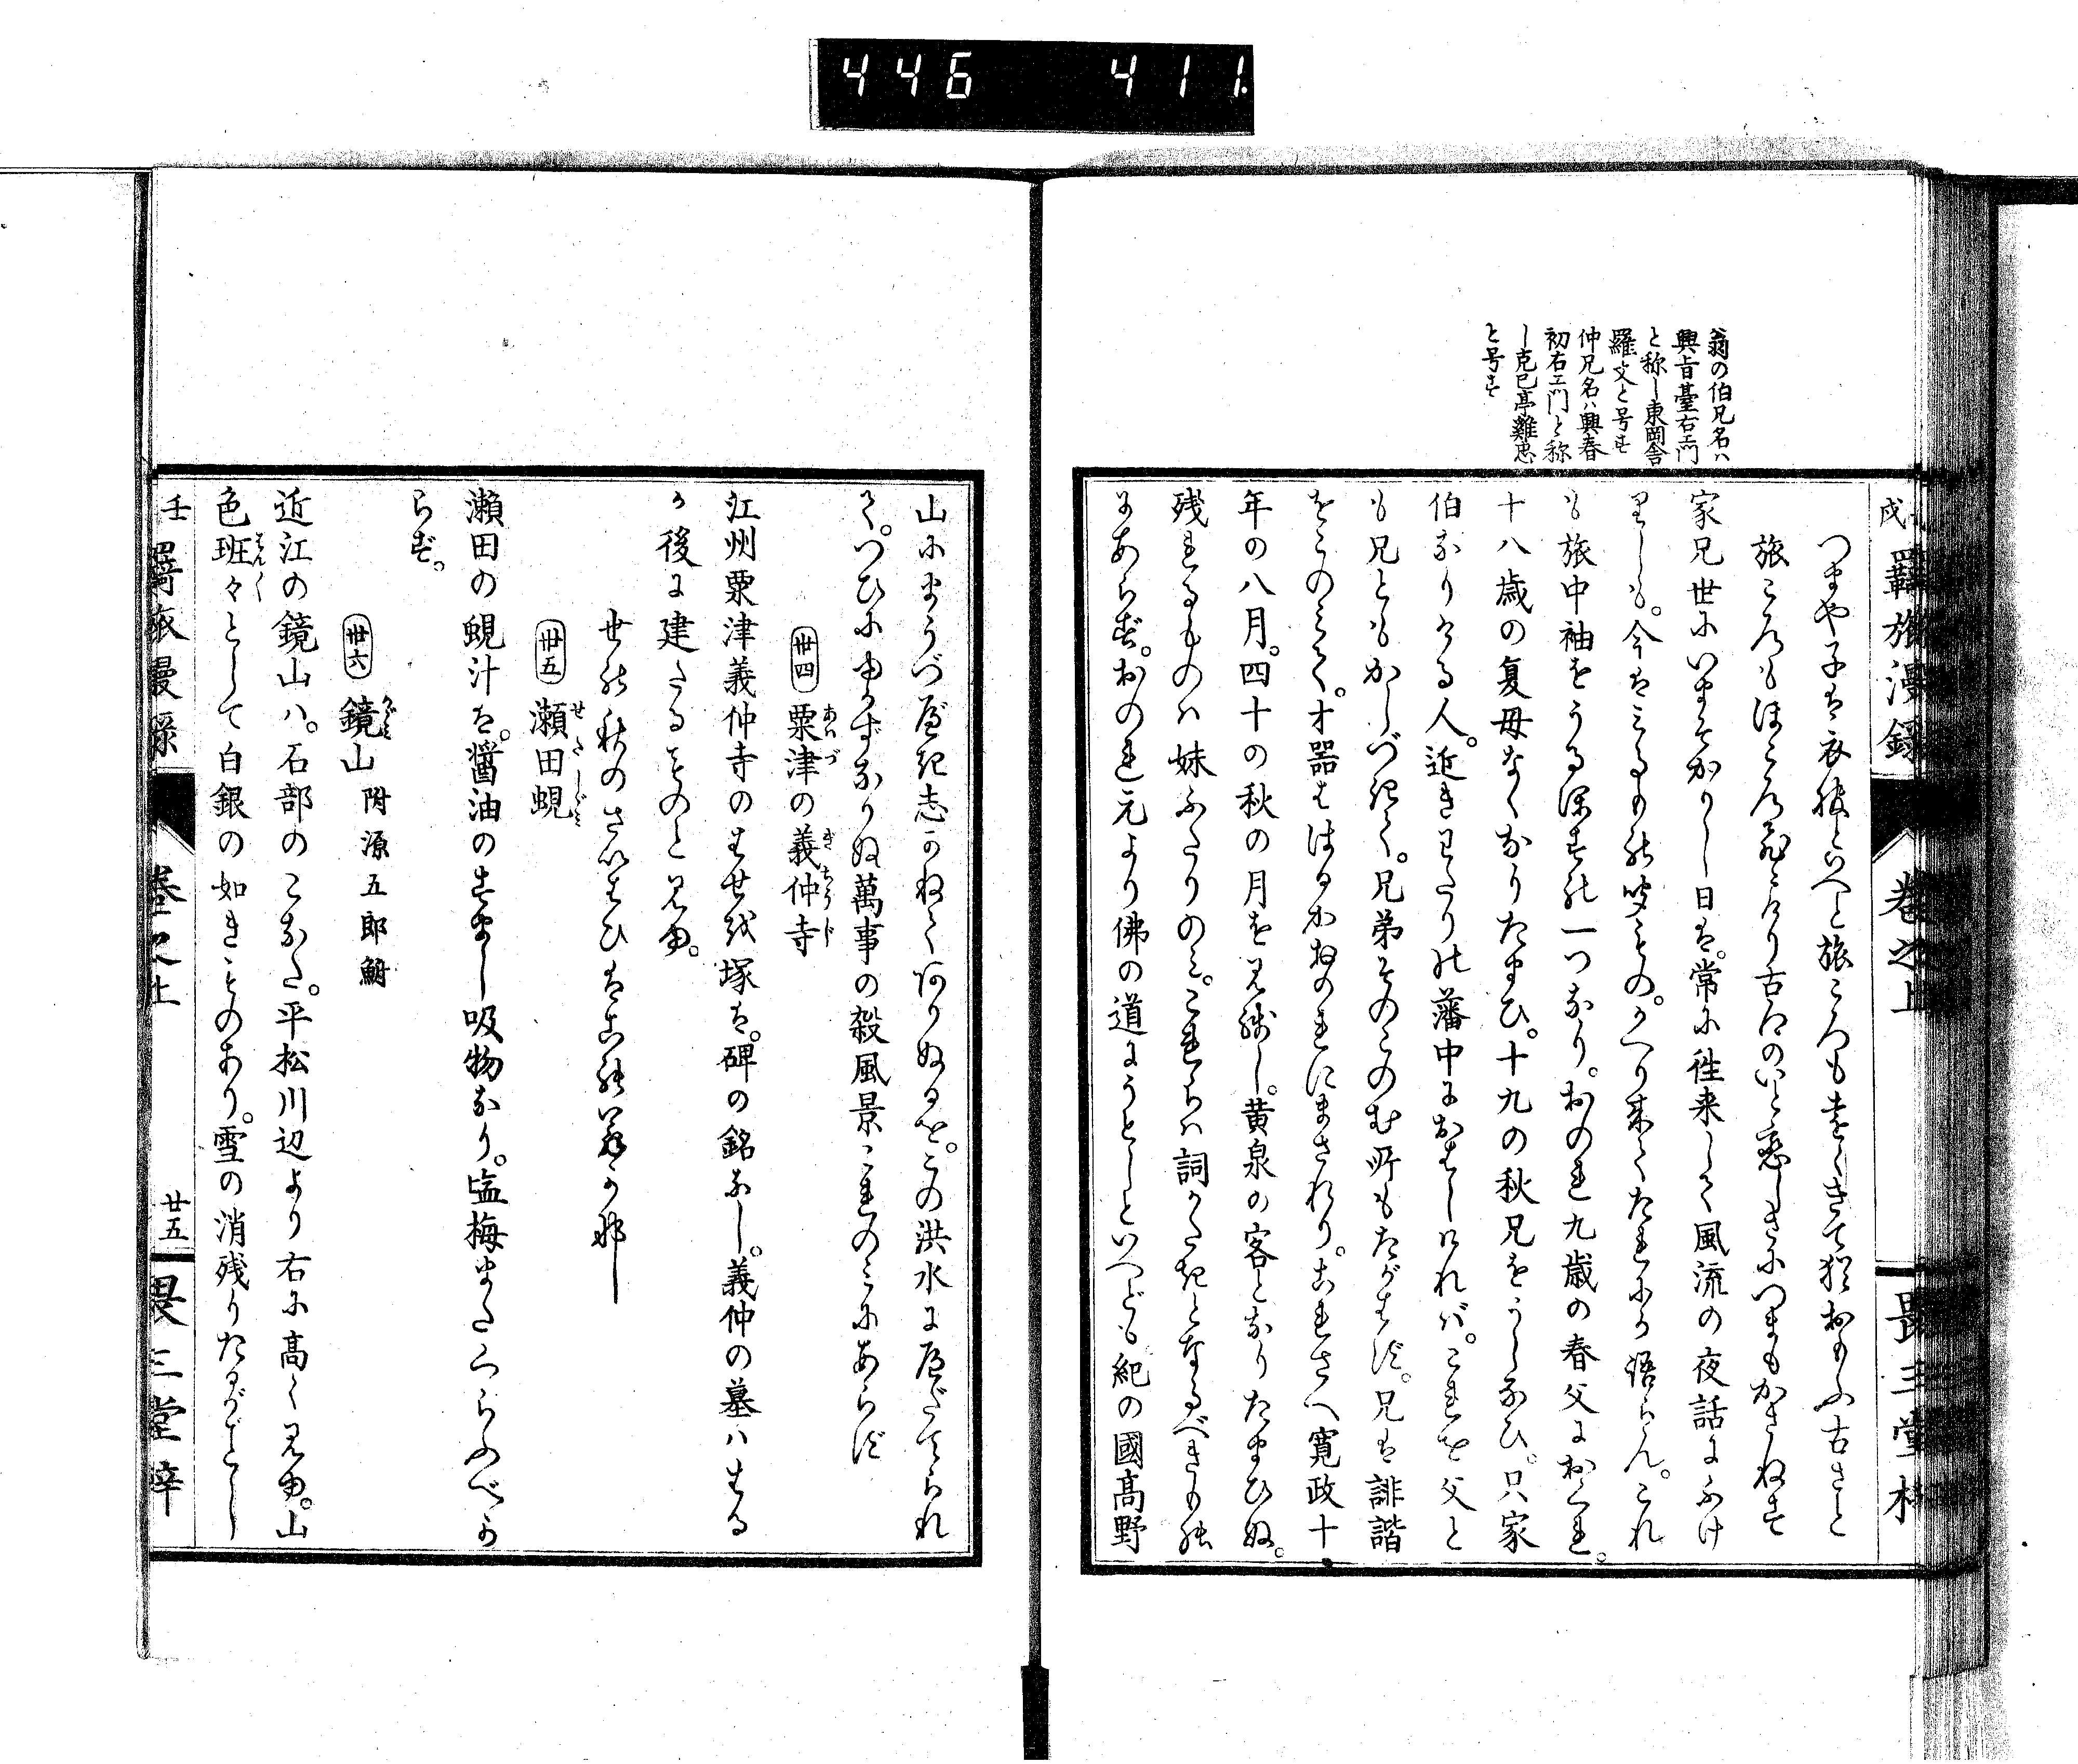 446 411.
翁の伯兄名ハ
興旨臺右エ門
と称し東岡舎
羅文と号す
仲兄名ハ興春
初右エ門と称
し克己亭鷄忠
と号す
戌 羇旅漫録 巻之上 畏三堂梓
つまや子は衣服といへと旅ころもをくきて猶おもふ古さと
旅ころもほころひにけり古さとのいと恋しきにつまもかさねす
家兄世にいまそかりし日は。常に往来して風流の夜話にふけ
りしも。今はみるもの聞もの。かへり来てたれにか語らん。これ
も旅中袖をうるほすの一つなり。おのれ九歳の春父におくれ。
十八歳の夏母なくなりたまひ。十九の秋兄をうしなひ。只家
伯なりける人。近きわたりの藩中におはしければ。これを父と
も兄ともかしづきて。兄弟そのこのむ所もたがはず。兄は誹諧
をこのみて。才器はほるかおのれにまされり。これさへ寛政十
年の八月。四十の秋の月を見残し。黄泉の客となりたまひぬ。
残れるものハ妹ふたりのみ。これらハ詞かたきとなるべきもの
にあらず。おのれ元より佛の道にうとしといへども。紀の國高野
山にまうづべき志かねてありぬるを。この洪水にへだてられ
て。つひにゆかずなりぬ萬事の殺風景これのみにあらず
卅四 粟津の義仲寺
江州粟津義仲寺のはせを塚は。碑の銘なし。義仲の墓ハはる
か後に建たるものと見ゆ。
世の秋のさいはひはこの翁かな
卅五 瀬田蜆
瀬田の蜆汁は。醤油のすまし吸物なり。塩梅またくらふべか
らず。
卅六 鏡山 附源五郎鮒
近江の鏡山ハ。石部のこなた。平松川辺より右に高く見ゆ。山
色班々として白銀の如きものあり。雪の消残りたるがごとし
壬 羇旅漫録 巻之上 廿五 畏三堂梓